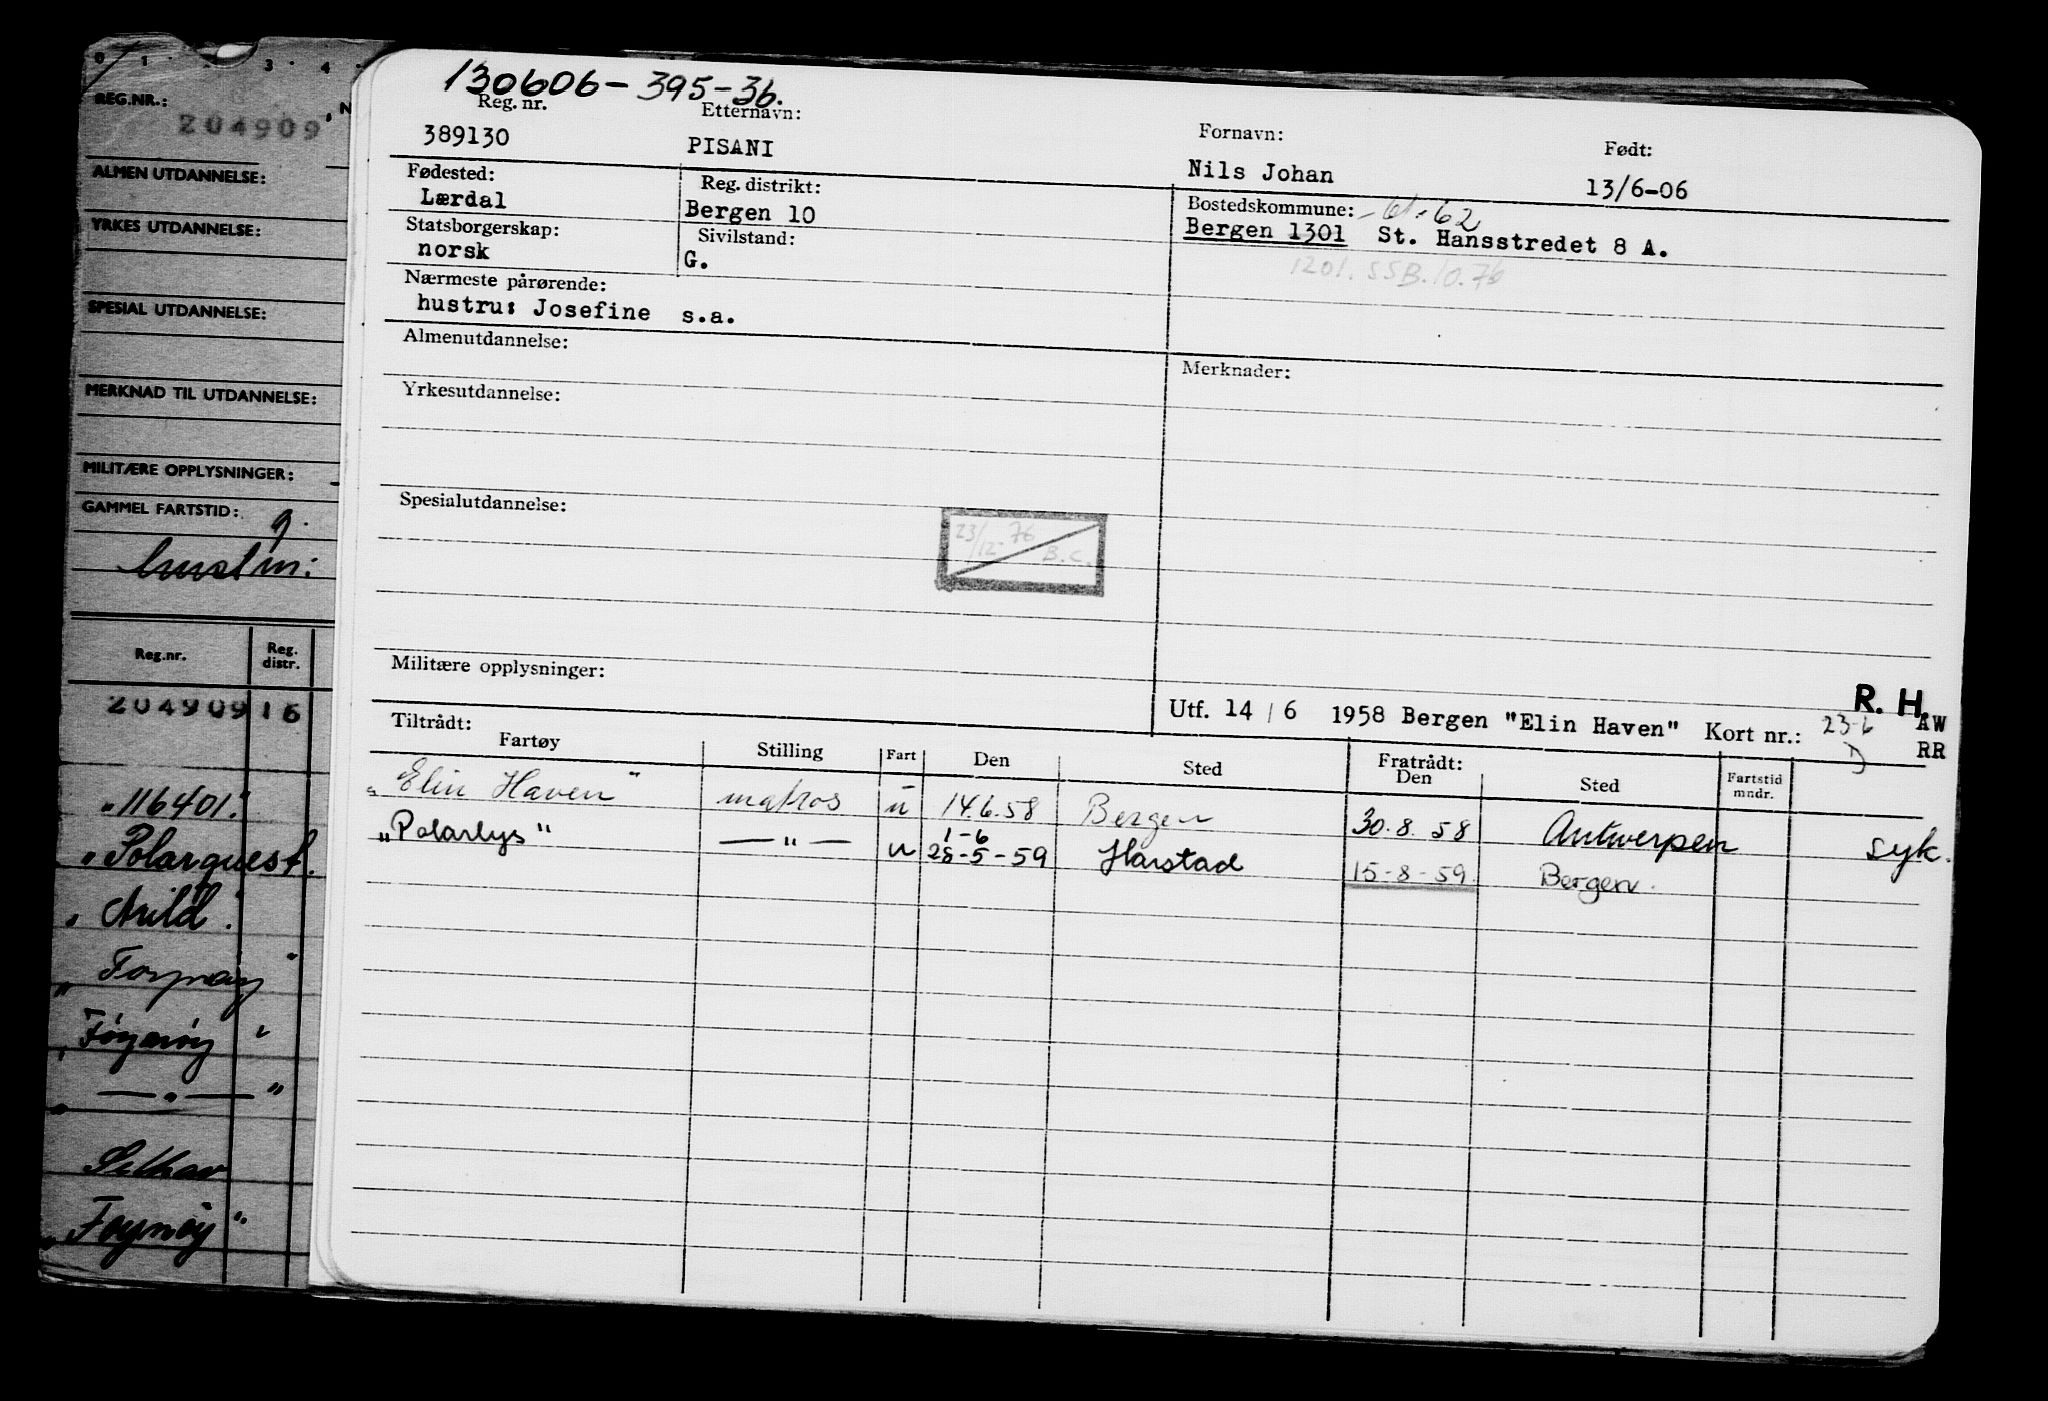 0 1 · 2 · 3 · 4 ·
REG.NR.:
204909
ALMEN UTDANNELSE:
YRKES UTDANNELSE:
SPESIAL UTDANNELSE:
MERKNAD TIL UTDANNELSE:
MILITÆRE OPPLYSNINGER:
GAMMEL FARTSTID: g.
Reg.nr. Reg. distr.
204909 16
"116401."
"Polarquest"
"Arild"
"Føynøy"
"— " —"
"Føynøy"
130606-395-36.
Reg. nr. Etternavn: Fornavn: Født:
389130 PISANI Nils Johan 13/6-06
Fødested: Reg. distrikt: Bostedskommune: -61-62
Lærdal Bergen 10 Bergen 1301 St. Hansstredet 8 A.
Statsborgerskap: Sivilstand:
norsk G. 1201. SSB.10.76
Nærmeste pårørende:
hustru: Josefine s.a.
Almenutdannelse: Merknader:
Yrkesutdannelse:
Spesialutdannelse:
23/12-76 B.C.
Militære opplysninger:
R. H.
Utf. 14 / 6 1958 Bergen "Elin Haven" Kort nr.: 23-6 AW
RR
Tiltrådt: Fratrådt:
Fartøy Stilling Fart Den Sted Den Sted Fartstid mndr.
"Elin Haven" matros u 14.6.58 Bergen 30.8.58 Antwerpen syk.
"Polarlys" — " — u 1-6 28-5-59 Harstad 15-8-59 Bergen.